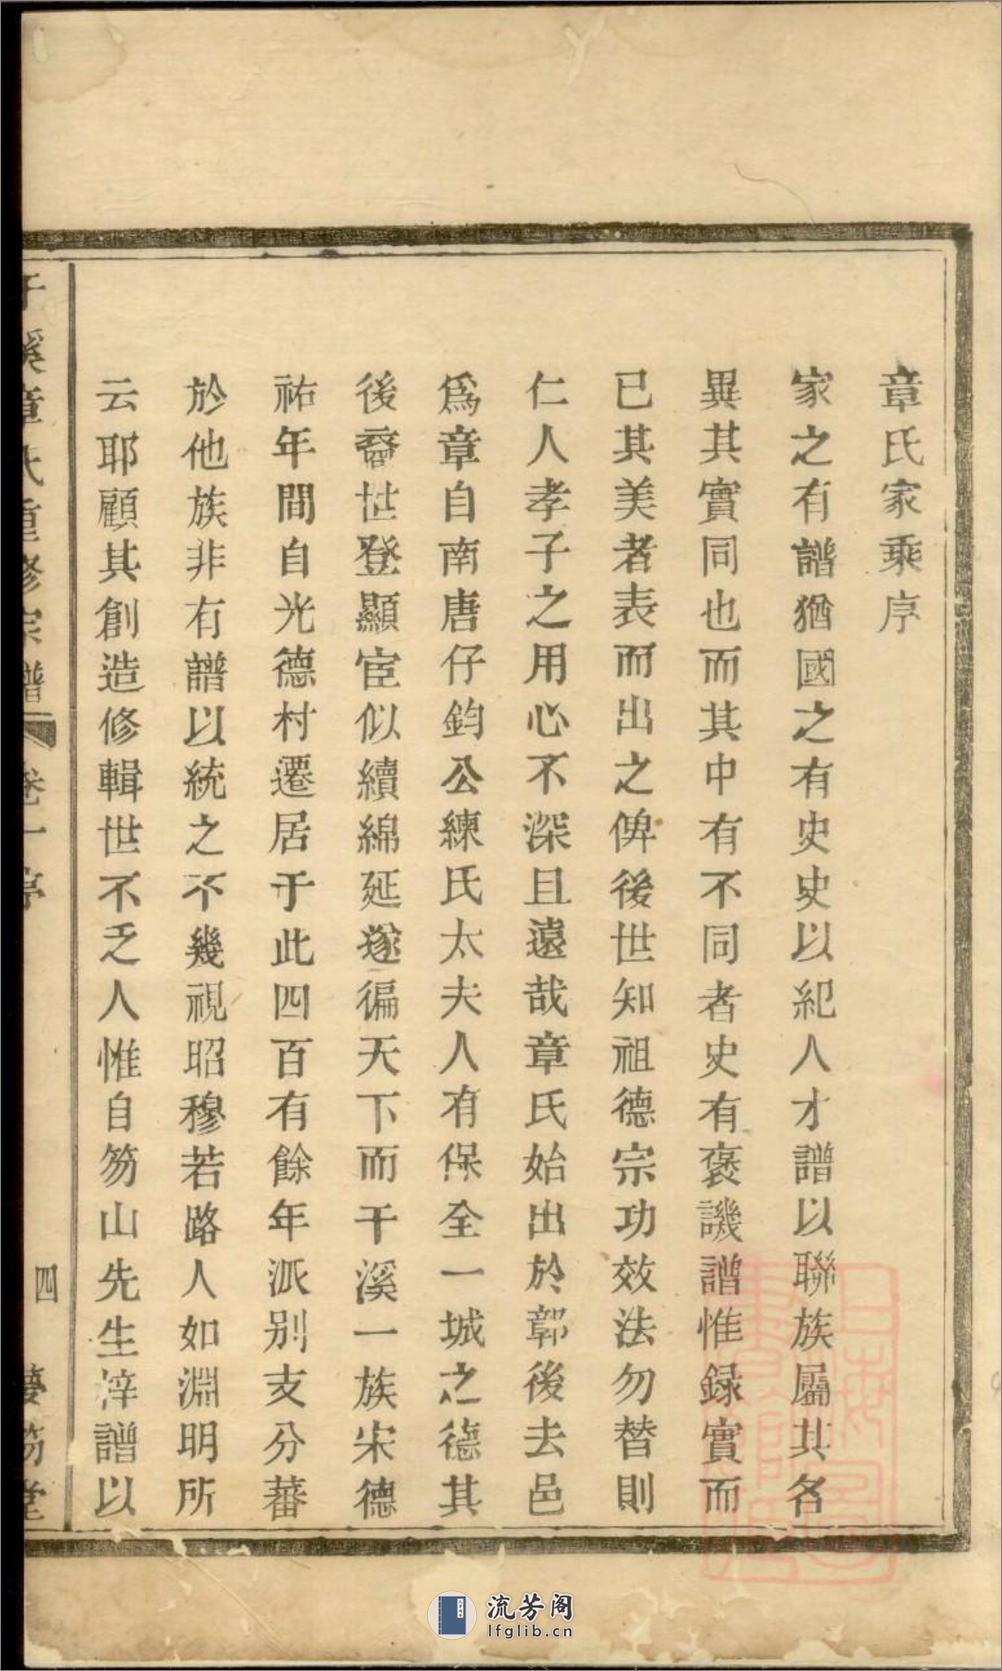 章氏家乘序
家之有譜猶國之有史史以紀人才譜以聯族屬其各
異其實同也而其中有不同者史有褒譏譜惟録實而
已其美者表而出之俾後世知祖德宗功效法勿替則
仁人孝子之用心不深且遠哉章氏始出於鄣後去邑
爲章自南唐仔鈞公練氏太夫人有保全一城之德其
後裔世登顯宦似續綿延遂徧天下而干溪一族宋德
祐年間自光德村遷居于此四百有餘年派别支分蕃
於他族非有譜以統之不幾視昭穆若路人如淵明所
云耶顧其創造修輯世不乏人惟自笏山先生梓譜以
干溪章氏重修宗譜 卷一序 四
流芳阁
lfglib.cn